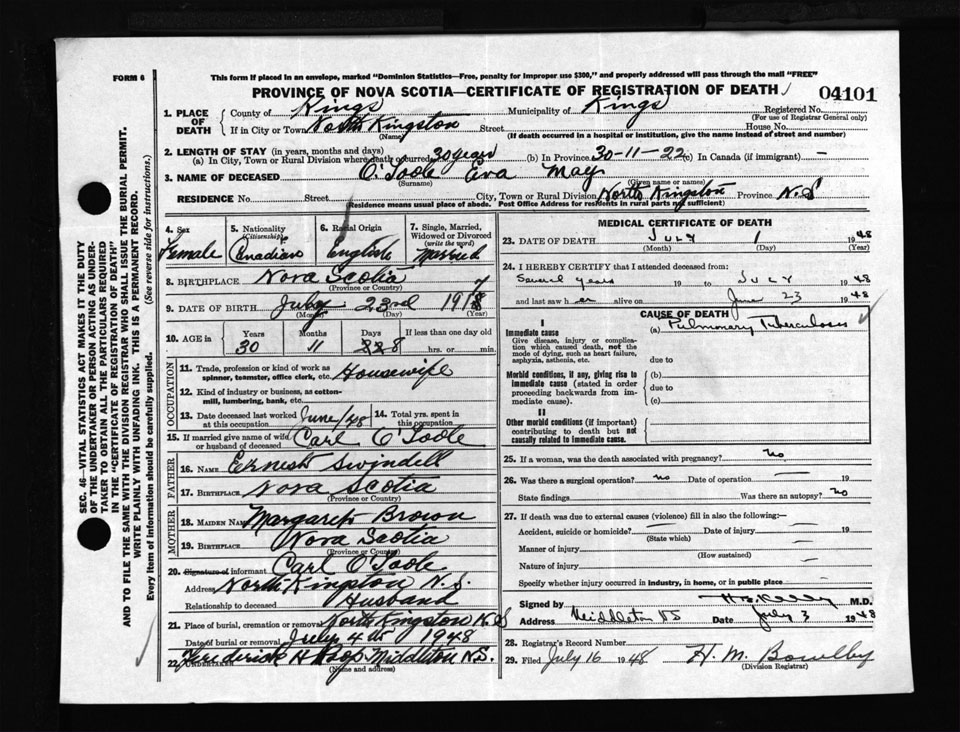 FORM 6
This form if placed in an envelope, marked "Dominion Statistics—Free, penalty for improper use $300," and properly addressed will pass through the mail "FREE"
PROVINCE OF NOVA SCOTIA—CERTIFICATE OF REGISTRATION OF DEATH
04101
1. PLACE OF DEATH
County of Kings Municipality of Kings Registered No.
(For use of Registrar General only)
If in City or Town North Kingston Street House No.
(Name) (If death occurred in a hospital or institution, give the name instead of street and number)
2. LENGTH OF STAY (in years, months and days)
(a) In City, Town or Rural Division where death occurred 30 years (b) In Province 30-11-22 (c) In Canada (if immigrant) —
3. NAME OF DECEASED O'Toole Eva May
(Surname) (Given name or names)
RESIDENCE No. Street City, Town or Rural Division North Kingston Province N.S
Residence means usual place of abode. Post Office Address for residents in rural parts not sufficient)
4. Sex Female
5. Nationality (Citizenship) Canadian
6. Racial Origin English
7. Single, Married, Widowed or Divorced (write the word) Married
8. BIRTHPLACE Nova Scotia
(Province or Country)
9. DATE OF BIRTH July 23rd 191
(Month) (Day) (Year)
10. AGE in Years Months Days If less than one day old
30 11 8 hrs. or min.
OCCUPATION
11. Trade, profession or kind of work as spinner, teamster, office clerk, etc. Housewife
12. Kind of industry or business, as cotton-mill, lumbering, bank, etc.
13. Date deceased last worked at this occupation June/48
14. Total yrs. spent in this occupation
15. If married give name of wife or husband of deceased Carl O'Toole
FATHER
16. NAME Ernest Swindell
17. BIRTHPLACE Nova Scotia
(Province or Country)
MOTHER
18. MAIDEN NAME Margaret Brown
19. BIRTHPLACE Nova Scotia
(Province or Country)
20. Signature of informant Carl O'Toole
Address North Kingston N.S.
Relationship to deceased Husband
21. Place of burial, cremation or removal North Kingston N.S
Date of burial or removal July 4th 1948
22. UNDERTAKER Frederick H Middleton N.S.
(Name and address)
MEDICAL CERTIFICATE OF DEATH
23. DATE OF DEATH July 1 1948
(Month) (Day) (Year)
24. I HEREBY CERTIFY that I attended deceased from:
Several years 19 to July 1948
and last saw her alive on June 23 1948
CAUSE OF DEATH
I
Immediate cause
Give disease, injury or complication which caused death, not the mode of dying, such as heart failure, asphyxia, asthenia, etc.
(a) Pulmonary Tuberculosis
due to
Morbid conditions, if any, giving rise to immediate cause (stated in order proceeding backwards from immediate cause).
(b)
due to
(c)
II
Other morbid conditions (if important) contributing to death but not causally related to immediate cause.
25. If a woman, was the death associated with pregnancy? no
26. Was there a surgical operation? no Date of operation — 19
State findings Was there an autopsy? no
27. If death was due to external causes (violence) fill in also the following:—
Accident, suicide or homicide? Date of injury 19
(State which)
Manner of injury
(How sustained)
Nature of injury
Specify whether injury occurred in industry, in home, or in public place
Signed by H.E. Kelly M.D.
Address Middleton NS Date July 3 1948
28. Registrar's Record Number
29. Filed July 16 1948 H. M. Bowlby
(Division Registrar)
SEC. 46—VITAL STATISTICS ACT MAKES IT THE DUTY
OF THE UNDERTAKER OR PERSON ACTING AS UNDER-
TAKER TO OBTAIN ALL THE PARTICULARS REQUIRED
IN THE "CERTIFICATE OF REGISTRATION OF DEATH"
AND TO FILE THE SAME WITH THE DIVISION REGISTRAR WHO SHALL ISSUE THE BURIAL PERMIT.
WRITE PLAINLY WITH UNFADING INK. THIS IS A PERMANENT RECORD.
Every item of information should be carefully supplied. (See reverse side for instructions.)